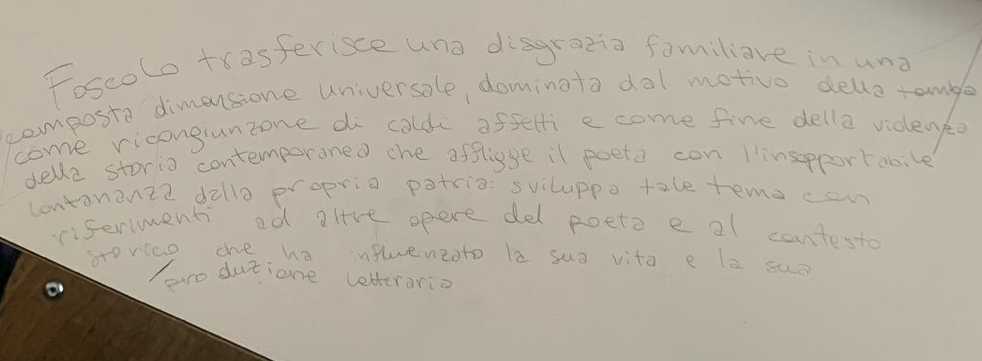 Foscolo trasferisce una disgrazia familiare in una
composta dimensione universale, dominata dal motivo della tomba
come ricongiunzone di caldi affetti e come fine della violenza
della storia contemporanea che affligge il poeta con l'insopportabile
lontananza dalla propria patria: sviluppa tale tema con
riferimenti ad altre opere del poeta e al contesto
storico che ha influenzato la sua vita e la sua
produzione letteraria